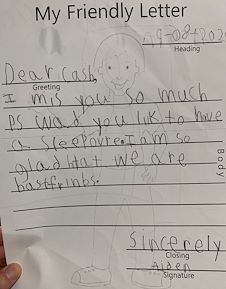 My Friendly Letter
Heading
Dear cash
Greeting
I mis you so much
PS wad you lik to have
a sleepovre. I am so
glad htat we are
bastfrinbs.
Body
Sincerely
Closing
Aiden
Signature